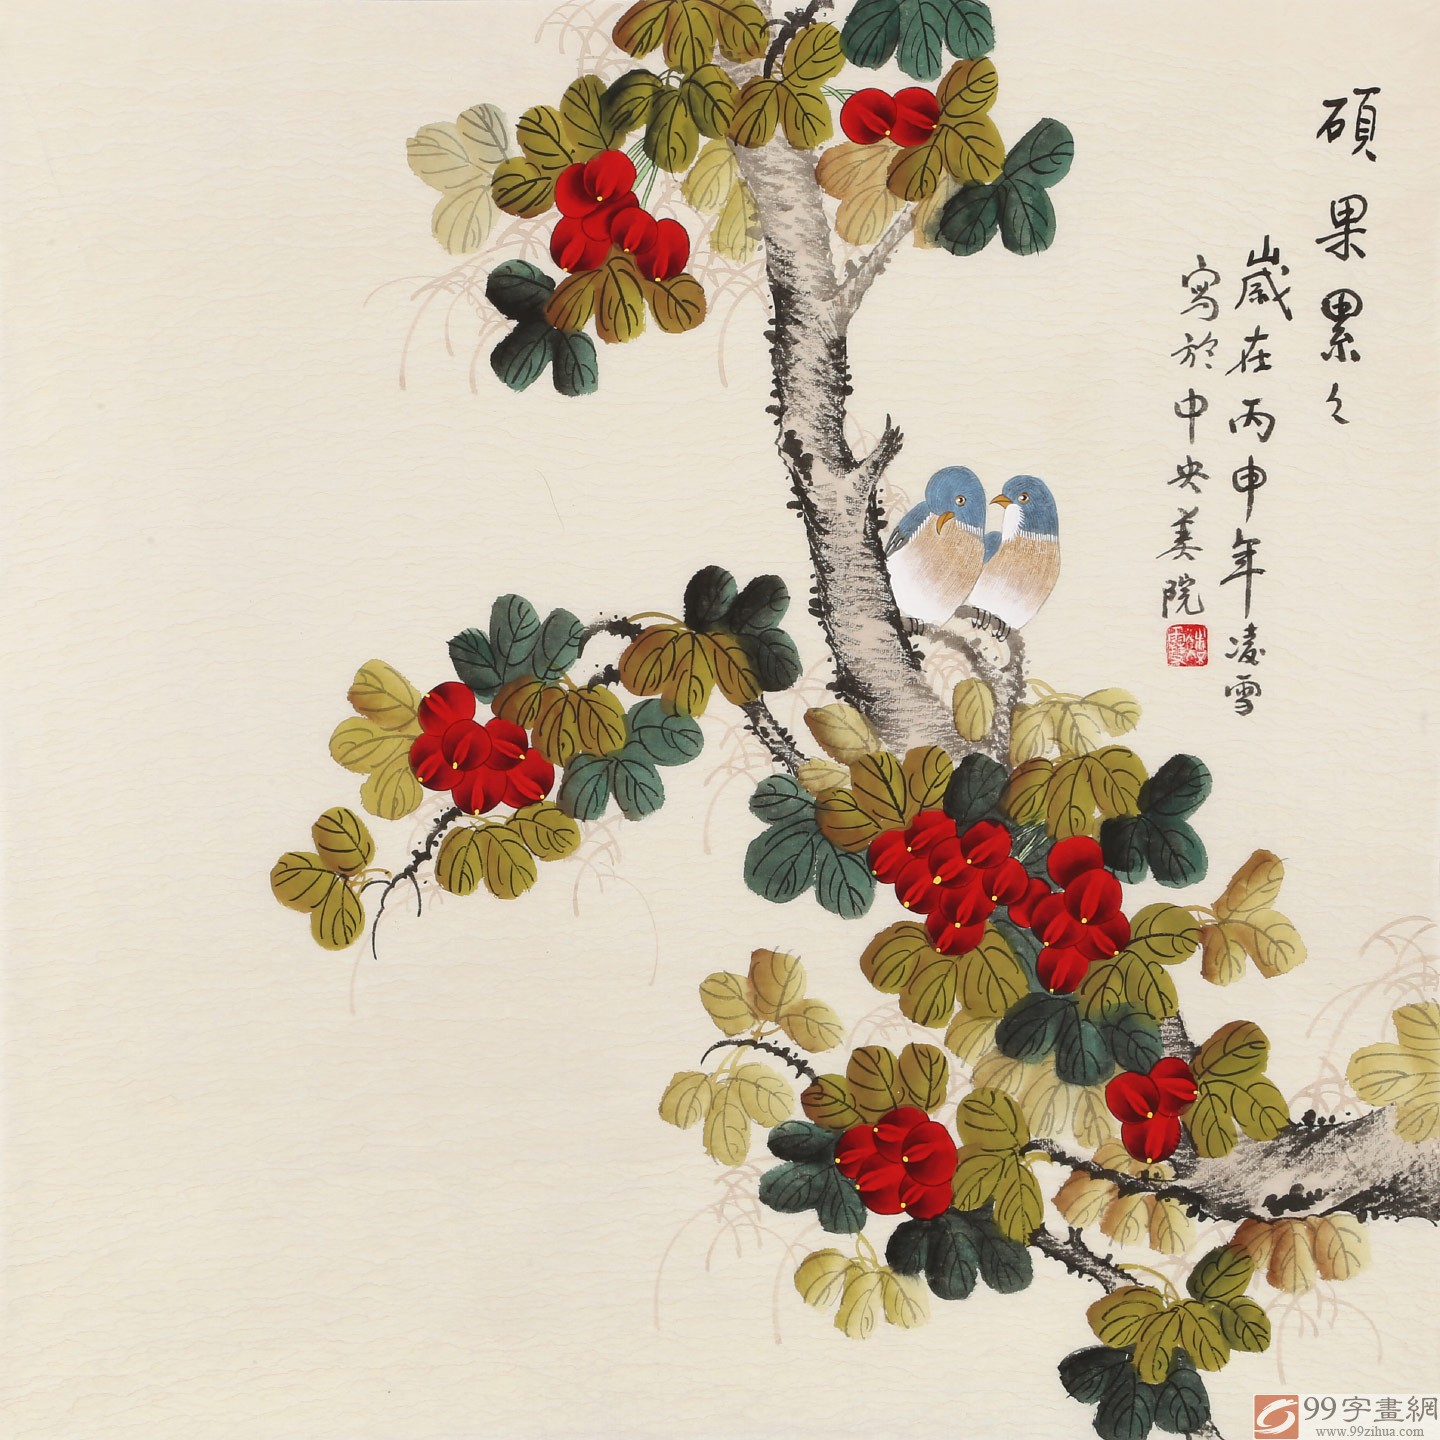 碩果累々
歲在丙申年凌雪
寫於中央美院
99字畫網
www.99zihua.com